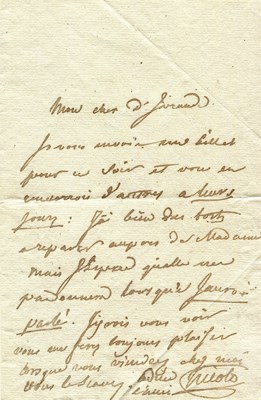 Mon cher d'
Je vous envoie un billet
pour ce soir et vous en
enverrois d'autres a leurs
jours: J'ai bien des torts
a reparer aupres de Madame
mais J'Espere quelle me
pardonnera lorsque J'aurai
parlé. vous voir
vous me ferez toujours plaisir
lorsque vous viendrez chez moi
Nicolo